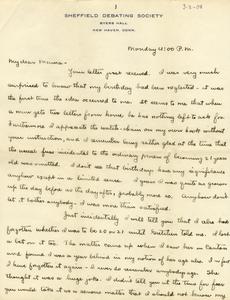 3-2-08
1
SHEFFIELD DEBATING SOCIETY
BYERS HALL
NEW HAVEN, CONN.
Monday 4:00 P.M.
My dear Mumma -
Your letter just received. I was very much
surprised to know that my birthday had been neglected - it was
the first time the idea occurred to me. It seems to me that when
a man gets two letters from home he has nothing left to ask for
Furthermore I appreciate the watch-chain on my new back without
your instruction, and was rather glad at the time that
the usual fuss incidental to the ordinary process of becoming 21 year
old was omitted. I don't see that birthdays has any significance
anyhow except in a limited sense. I guess I was quite as grown
up the day before as the day after, probably more so. Anyhow don't
let it bother anybody. I was more than satisfied.
Just incidentally I will tell you that I also had
forgotten whether I was to be 20 or 21 until told me. I lost
a bet on it too. The matter came up when I saw her in Canton
and found I was a year behind in my notion of her age also. I
I have forgotten it again - I never do remember anybody's age. She
thought it was a huge joke. I didn't tell you at the time for fear
you would take it as a serious matter that I should not know my